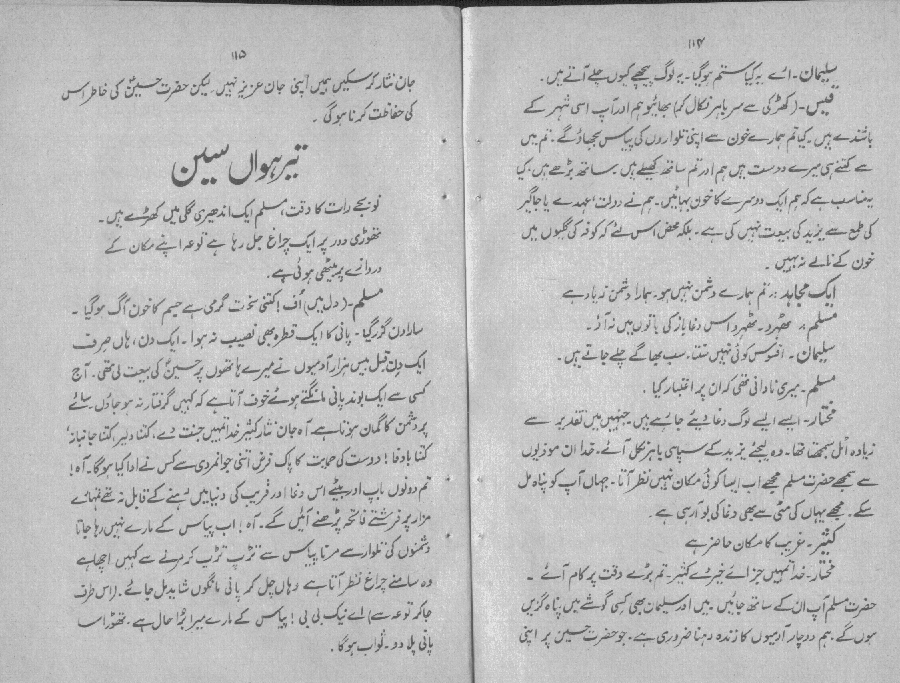 ۱۱۴
سلیمان۔ ائے یہ کیا ستم ہوگیا۔ یہ لوگ پیچھے کیوں چلے آتے ہیں۔
قیس۔ (کھڑکی سے سر باہر نکال کر) بھائیو ہم اور آپ اسی شہر کے
باشندے ہیں۔ کیا تم ہمارے خون سے اپنی تلواروں کی پیاس بجھاؤگے۔ تم میں
سے کتنے ہی میرے دوست ہیں ہم اور تم ساتھ کھیلے ہیں۔ ساتھ بڑھے ہیں۔ کیا
یہ مناسب ہے کہ ہم ایک دوسرے کا خون بہائیں۔ ہم نے دولت، عہدے یا جاگیر
کی طمع سے یزید کی بیعت نہیں کی ہے۔ بلکہ محض اس لئے کہ کوفہ کی گلیوں میں
خون کے نالے نہ بہیں۔
ایک مجاہد :۔ تم ہمارے دشمن نہیں ہو۔ ہمارا دشمن زیاد ہے
مسلم :۔ ٹھہرو۔ ٹھہرو اس دغا باز کی باتوں میں نہ آؤ۔
سلیمان۔ افسوس کوئی نہیں سنتا۔ سب بھاگے چلے جاتے ہیں۔
مسلم۔ میری نادانی تھی کہ ان پر اعتبار کیا۔
مختار۔ ایسے ایسے لوگ دغا دیئے جاتے ہیں۔ جنہیں میں تقدیر سے
زیادہ اٹل سمجھتا تھا۔ وہ لیجئے یزید کے سپاہی باہر نکل آئے۔ خدا ان موذیوں
سے سمجھے حضرت مسلم مجھے اب ایسا کوئی مکان نہیں نظر آتا۔ جہاں آپ کو پناہ مل
سکے۔ مجھے یہاں کی مٹی سے بھی دغا کی بو آرہی ہے۔
کثیر۔ غریب کا مکان حاضر ہے
مختار۔ خدا تمہیں جزائے خیر دے کثیر۔ تم بڑے وقت پر کام آئے۔
حضرت مسلم آپ ان کے ساتھ جائیں۔ میں اور سلیمان بھی کسی گوشے میں پناہ گزیں
ہوں گے۔ ہم دو چار آدمیوں کا زندہ رہنا ضروری ہے۔ جو حضرت حسین پر اپنی
۱۱۵
جان نثار کر سکیں ہمیں اپنی جان عزیز نہیں۔ لیکن حضرت حسینؑ کی خاطر اس
کی حفاظت کرنا ہوگی۔
تیرہواں سین
نو بجے رات کا وقت، مسلم ایک اندھیری گلی میں کھڑے ہیں۔
تھوڑی دور پر ایک چراغ جل رہا ہے توعہ اپنے مکان کے
دروازے پر بیٹھی ہوئی ہے۔
مسلم۔ (دل میں) اُف! کتنی سخت گرمی ہے جسم کا خون آگ ہوگیا۔
سارا دن گزر گیا۔ پانی کا ایک قطرہ بھی نصیب نہ ہوا۔ ایک دن، ہاں صرف
ایک دن قبل بیس ہزار آدمیوں نے میرے ہاتھوں پر حسینؑ کی بیعت لی تھی۔ آج
کسی سے ایک بوند پانی مانگتے ہوئے خوف آتا ہے کہ کہیں گرفتار نہ ہو جاؤں۔ سائے
پر دشمن کا گمان ہوتا ہے۔ آہ جان نثار کثیر خدا تمہیں جنت دے۔ کتنا دلیر کتنا جانباز
کتنا باوفا! دوست کی حمایت کا پاک فرض اتنی جوانمردی سے کس نے ادا کیا ہوگا۔ آہ!
تم دونوں باپ اور بیٹے اس دغا اور فریب کی دنیا میں رہنے کے قابل نہ تھے تمہارے
مزار پر فرشتے فاتحہ پڑھنے آئیں گے۔ آہ! اب پیاس کے مارے نہیں رہا جاتا
دشمنوں کی تلوار سے مرنا پیاس سے تڑپ تڑپ کر مرنے سے کہیں اچھا ہے
وہ سامنے چراغ نظر آتا ہے وہاں چل کر پانی مانگوں شاید مل جائے۔ (اس طرف
جا کر توعہ سے) اے نیک بی بی! پیاس کے مارے میرا بُرا حال ہے۔ تھوڑا سا
پانی پلا دو۔ ثواب ہوگا۔